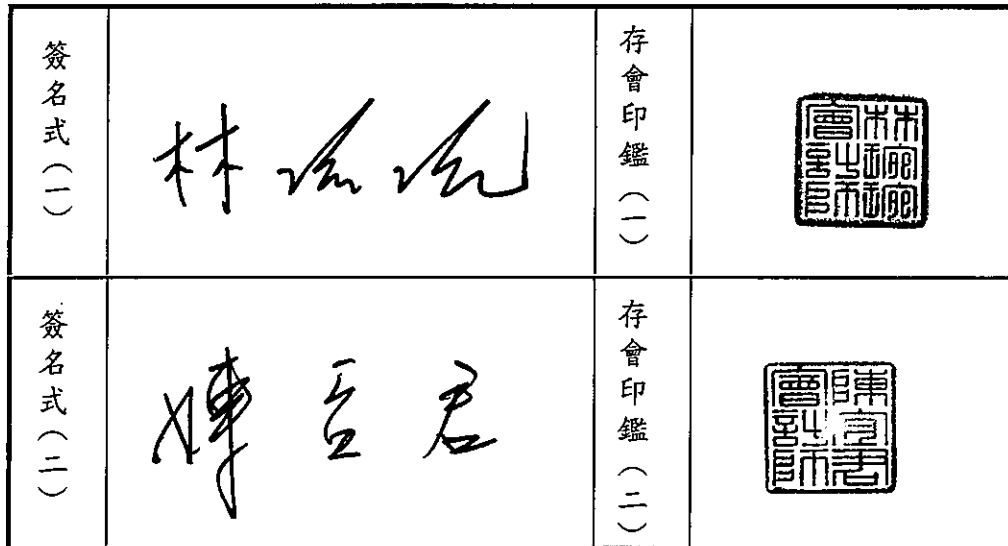 簽名式(一)
林琬琬
存會印鑑(一)
簽名式(二)
陳宜君
存會印鑑(二)
陳宜君會計師